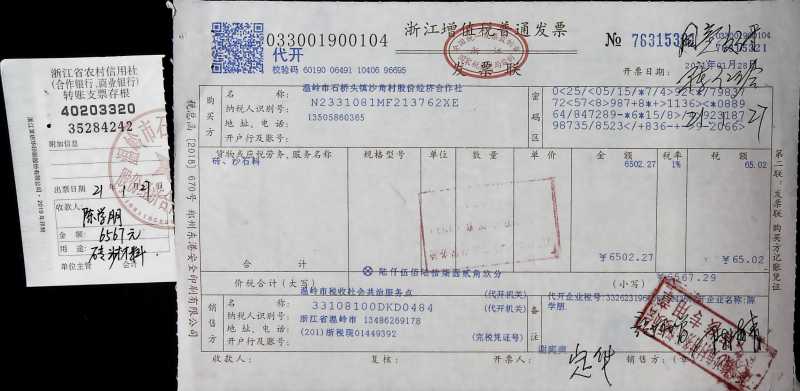 浙江省农村信用社
(合作银行、商业银行)
转账支票存根
40203320
35284242
附加信息
出票日期 21年1月27日
收款人:
陈学朋
金 额: 6567元
用 途: 砖沙石料
单位主管 会计
033001900104
浙江增值税普通发票
№ 76315321
033001900104
76315321
代开
校验码 60190 06491 10406 96695
发票联
开票日期:
2021年01月28日
购买方
名 称: 温岭市石桥头镇沙角村股份经济合作社
纳税人识别号: N2331081MF213762XE
地址、电话: 13505860365
开户行及账号:
密码区
货物或应税劳务、服务名称 规格型号 单位 数量 单价 金额 税率 税额
砖、沙石料 6502.27 1% 65.02
合 计 ￥6502.27 ￥65.02
价税合计(大写) 陆仟伍佰陆拾柒圆贰角玖分 (小写) ￥6567.29
销售方
名 称: 温岭市税收社会共治服务点 (代开机关)
纳税人识别号: 33108100DKD0484 (代开机关)
地址、电话: 浙江省温岭市 13486269178
开户行及账号: (201)浙税现01449392 (完税凭证号)
备注
学朋
收款人: 复核: 开票人: 销售方:
税总函[2018]670号
第二联:发票联 购买方记账凭证